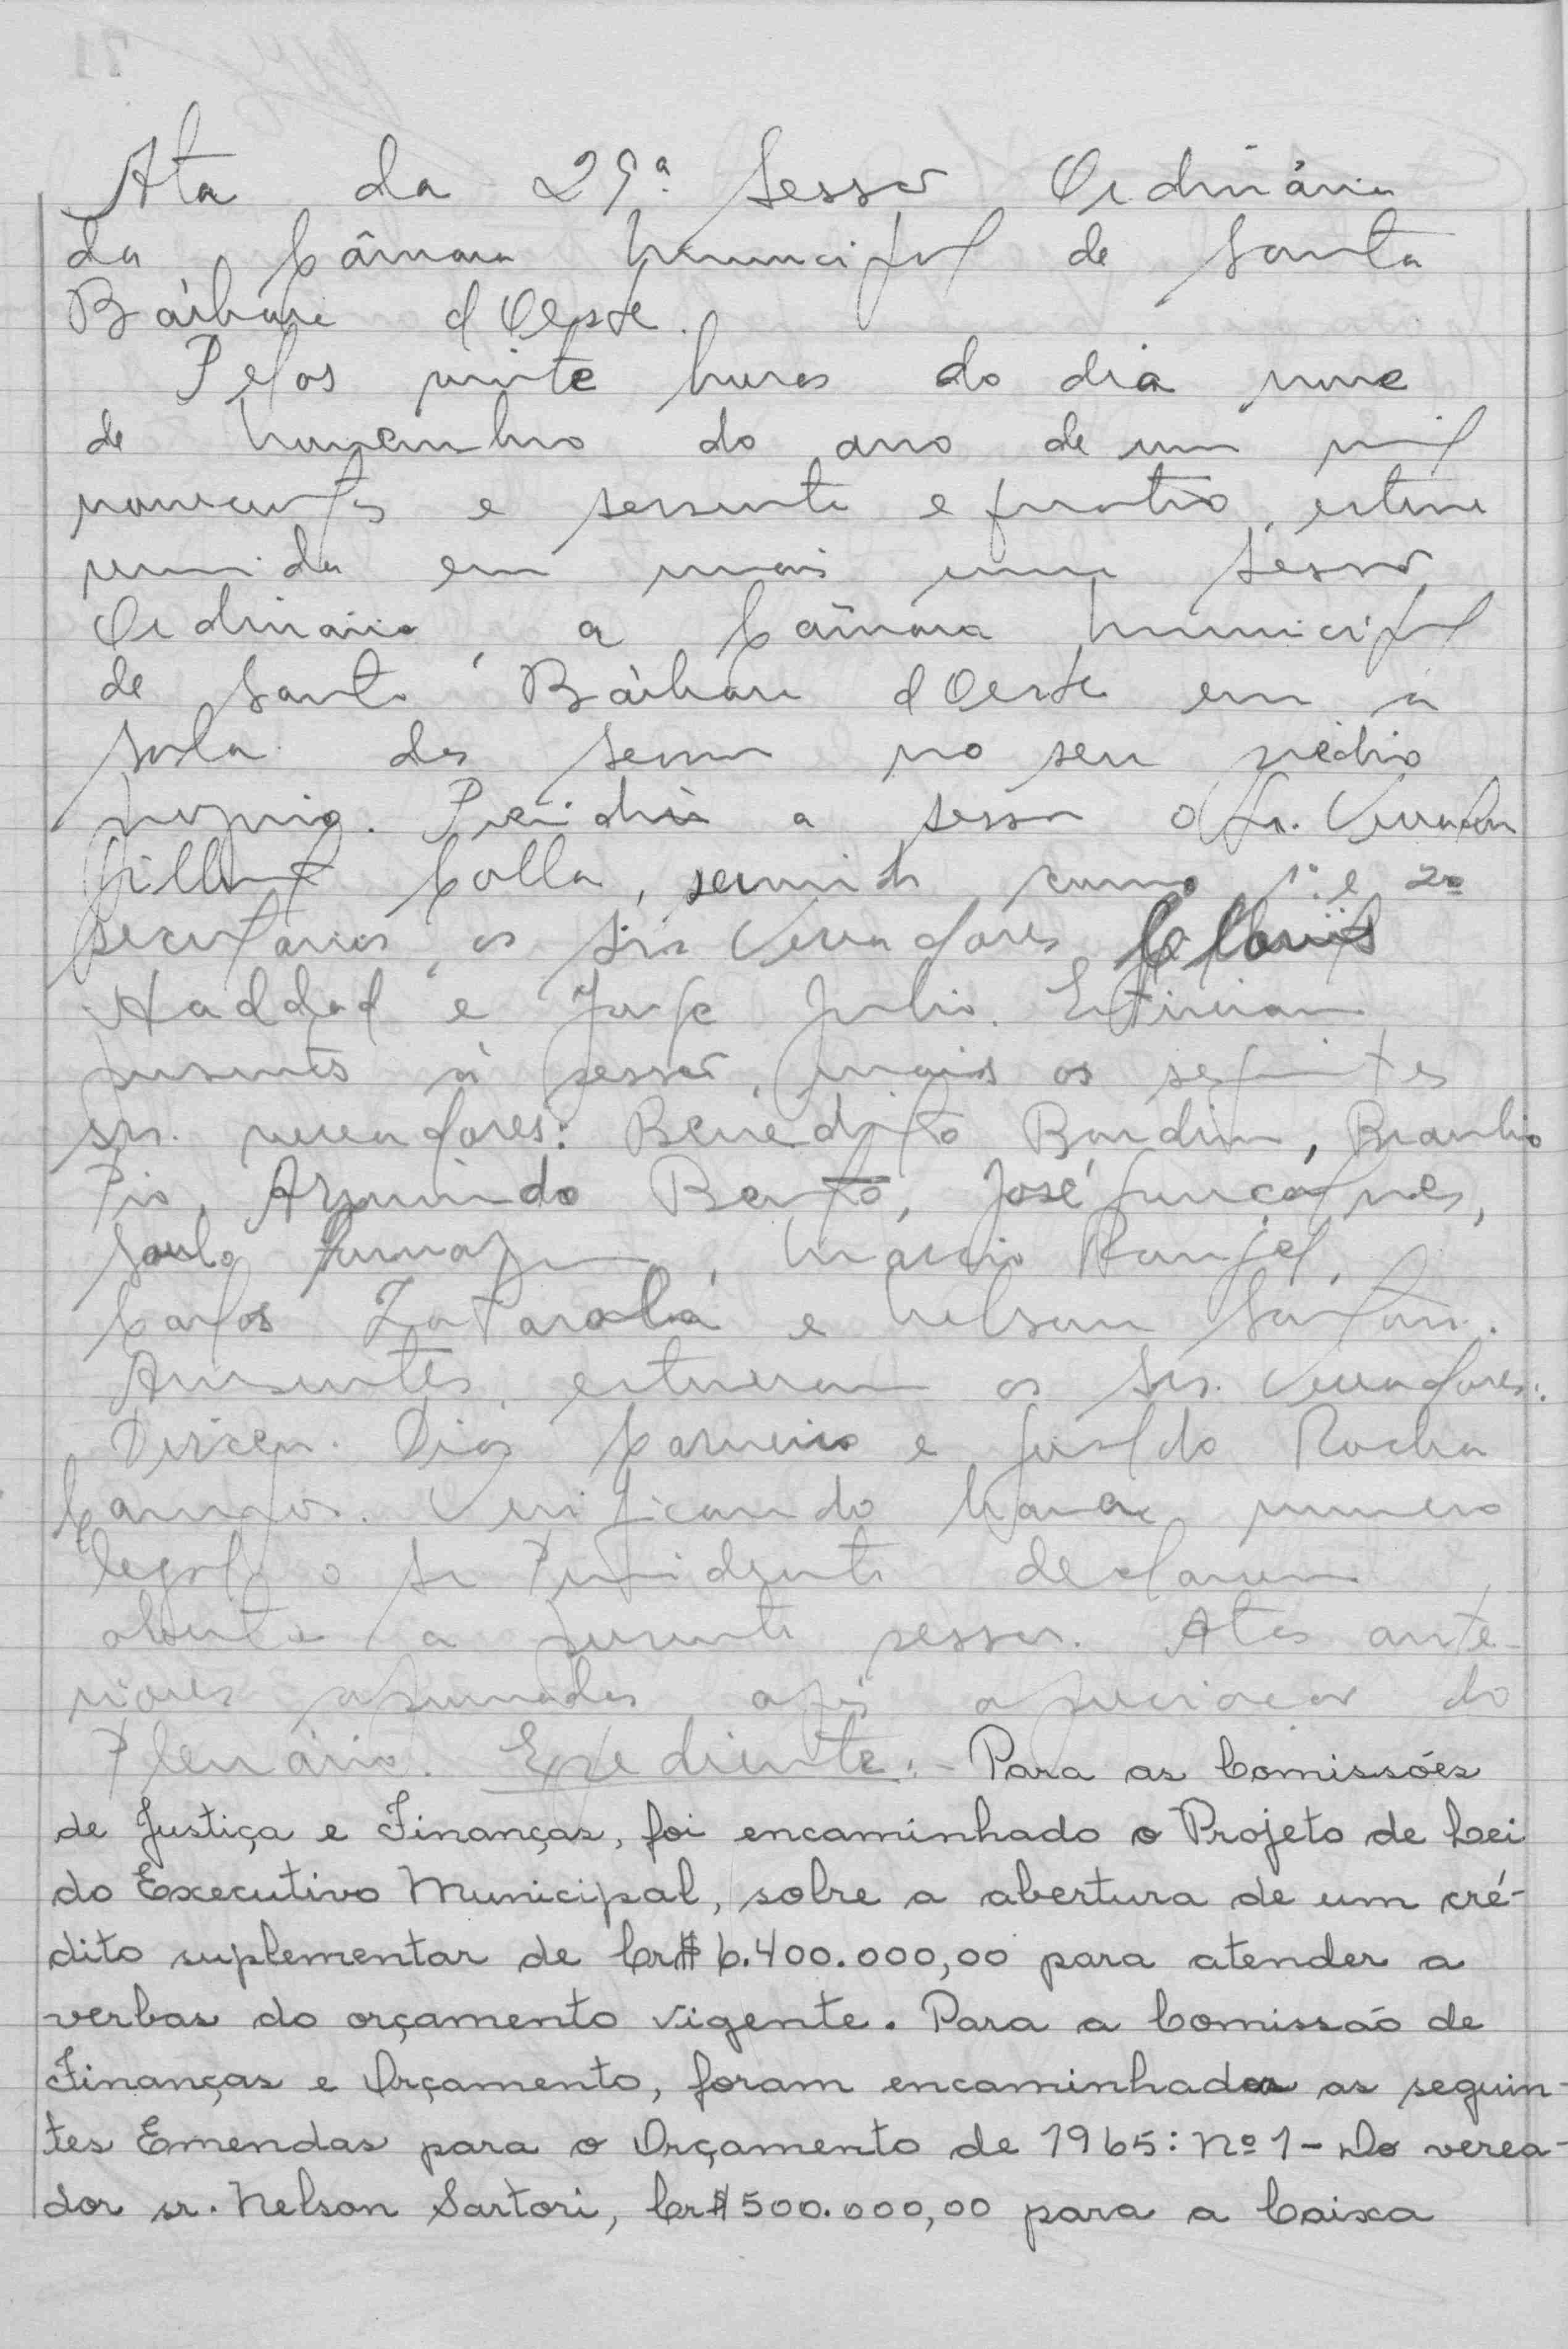 Ata da 29ª Sessão Ordinária
da Câmara Municipal de Santa
Bárbara d'Oeste.
Pelas vinte horas do dia nove
de Novembro do ano de um mil
novecentos e sessenta e quatro, esteve
reunida em mais uma Sessão
Ordinária, a Câmara Municipal
de Santa Bárbara d'Oeste em a
sala das sessões no seu prédio
próprio. Presidiu a sessão o Sr. Vereador
Colla, servindo como 1º e 2º
secretários, os Srs Vereadores Clovis
Haddad e Jorge Julio. Estiveram
presentes à sessão, mais os seguintes
srs. vereadores: Benedito Bardim, Braulio
Pio, Argemiro Bento, José Gonçalves,
Saulo, Marcio Rangel,
Carlos e Nelson Sartori.
Ausentes, estiveram os Srs. Vereadores:
Dirceu Dias Carneiro e Geraldo Rocha
Campos. Verificando haver numero
legal o Sr Presidente declarou
aberta a presente sessão. Atas ante-
riores aprovadas após apreciação do
Plenário. Expediente:- Para as Comissões
de Justiça e Finanças, foi encaminhado o Projeto de Lei
do Executivo Municipal, sobre a abertura de um cré-
dito suplementar de Cr$ 6.400.000,00 para atender a
verbas do orçamento vigente. Para a Comissão de
Finanças e Orçamento, foram encaminhadas as seguin-
tes Emendas para o Orçamento de 1965: Nº 1 - Do verea-
dor sr. Nelson Sartori, Cr$ 500.000,00 para a Caixa